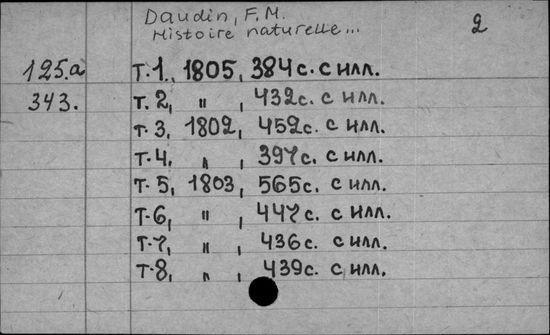 Daudin, F.M.
Histoire naturelle...
2
125.a т.1., 1805, 384 с. с илл.
343. т.2, " , 432с. с илл.
т.3, 1802, 452с. с илл.
т.4. " , 397с. с илл.
т.5, 1803, 565с. с илл.
т.6, " , 447с. с илл.
т.7, " , 436с. с илл.
т.8, " , 439с. с илл.